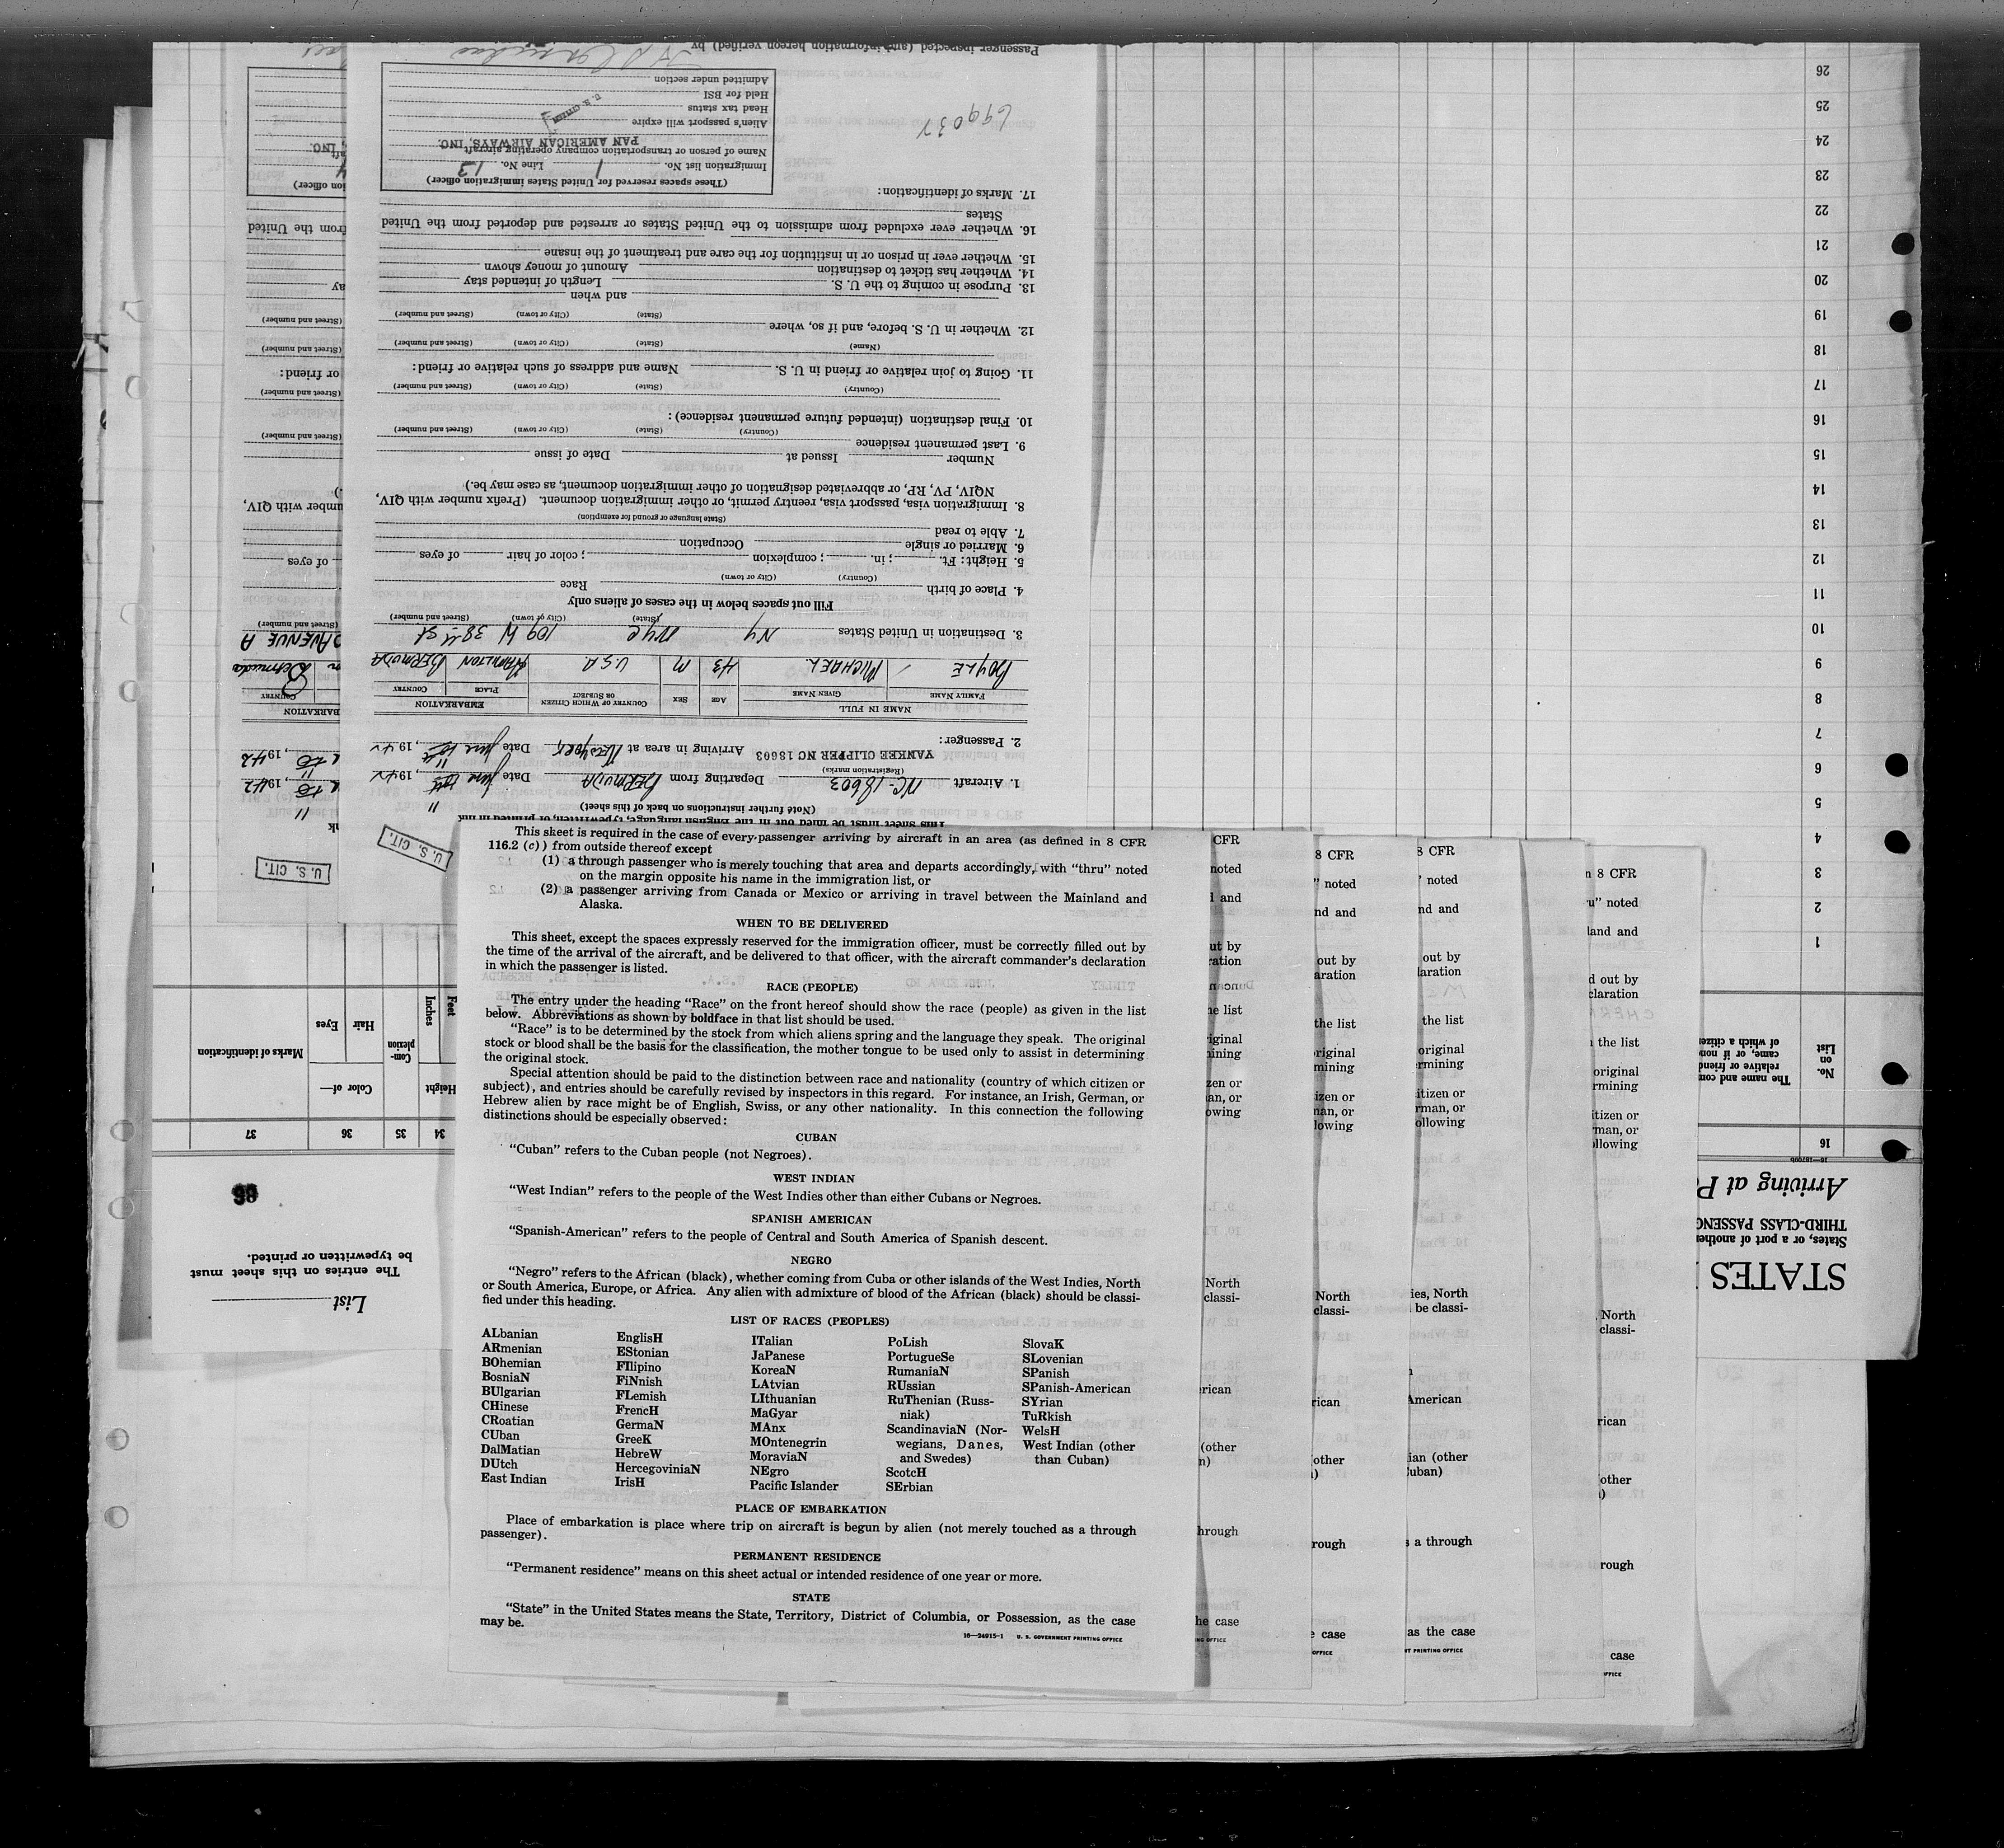 This sheet is required in the case of every passenger arriving by aircraft in an area (as defined in 8 CFR
116.2 (c)) from outside thereof except
(1) a through passenger who is merely touching that area and departs accordingly, with "thru" noted
on the margin opposite his name in the immigration list, or
(2) a passenger arriving from Canada or Mexico or arriving in travel between the Mainland and
Alaska.
WHEN TO BE DELIVERED
This sheet, except the spaces expressly reserved for the immigration officer, must be correctly filled out by
the time of the arrival of the aircraft, and be delivered to that officer, with the aircraft commander's declaration
in which the passenger is listed.
RACE (PEOPLE)
The entry under the heading "Race" on the front hereof should show the race (people) as given in the list
below. Abbreviations as shown by boldface in that list should be used.
"Race" is to be determined by the stock from which aliens spring and the language they speak. The original
stock or blood shall be the basis for the classification, the mother tongue to be used only to assist in determining
the original stock.
Special attention should be paid to the distinction between race and nationality (country of which citizen or
subject), and entries should be carefully revised by inspectors in this regard. For instance, an Irish, German, or
Hebrew alien by race might be of English, Swiss, or any other nationality. In this connection the following
distinctions should be especially observed:
CUBAN
"Cuban" refers to the Cuban people (not Negroes).
WEST INDIAN
"West Indian" refers to the people of the West Indies other than either Cubans or Negroes.
SPANISH AMERICAN
"Spanish-American" refers to the people of Central and South America of Spanish descent.
NEGRO
"Negro" refers to the African (black), whether coming from Cuba or other islands of the West Indies, North
or South America, Europe, or Africa. Any alien with admixture of blood of the African (black) should be classi-
fied under this heading.
LIST OF RACES (PEOPLES)
ALbanian
ARmenian
BOhemian
BosniaN
BUlgarian
CHinese
CRoatian
CUban
DalMatian
DUtch
East Indian
EnglisH
EStonian
FIlipino
FiNnish
FLemish
FrencH
GermaN
GreeK
HebreW
HercegoviniaN
IrisH
ITalian
JaPanese
KoreaN
LAtvian
LIthuanian
MaGyar
MAnx
MOntenegrin
MoraviaN
NEgro
Pacific Islander
PoLish
PortugueSe
RumaniaN
RUssian
RuThenian (Russ-
niak)
ScandinaviaN (Nor-
wegians, Danes,
and Swedes)
ScotcH
SErbian
SlovaK
SLovenian
SPanish
SPanish-American
SYrian
TuRkish
WelsH
West Indian (other
than Cuban)
PLACE OF EMBARKATION
Place of embarkation is place where trip on aircraft is begun by alien (not merely touched as a through
passenger).
PERMANENT RESIDENCE
"Permanent residence" means on this sheet actual or intended residence of one year or more.
STATE
"State" in the United States means the State, Territory, District of Columbia, or Possession, as the case
may be.
16—24915-1 U. S. GOVERNMENT PRINTING OFFICE
U. S. CIT.
This sheet must be filled out in the English language, typewritten, or printed in ink
(Note further instructions on back of this sheet)
1. Aircraft NC-18603 Departing from BERMUDA Date June 11th, 1942
(Registration marks)
YANKEE CLIPPER NC 18603
2. Passenger: Arriving in area at New York Date June 11th, 1942
NAME IN FULL
FAMILY NAME GIVEN NAME AGE SEX COUNTRY OF WHICH CITIZEN OR SUBJECT EMBARKATION PLACE COUNTRY
BOYLE MICHAEL 43 M U.S.A. HAMILTON BERMUDA
3. Destination in United States NY NYC 109 W 38th St
(State) (City or town) (Street and number)
Fill out spaces below in the cases of aliens only
4. Place of birth Race
(Country) (City or town)
5. Height: Ft. ; in. ; complexion ; color of hair of eyes
6. Married or single Occupation
7. Able to read
(State language or ground for exemption)
8. Immigration visa, passport visa, reentry permit, or other immigration document. (Prefix number with QIV,
NQIV, PV, RP, or abbreviated designation of other immigration document, as case may be.)
Number Issued at Date of issue
9. Last permanent residence
(Country) (State) (City or town) (Street and number)
10. Final destination (intended future permanent residence):
(Country) (State) (City or town) (Street and number)
11. Going to join relative or friend in U. S. Name and address of such relative or friend:
(Name) (State) (City or town) (Street and number)
12. Whether in U. S. before, and if so, where
(State) (City or town) (Street and number)
and when
13. Purpose in coming to the U. S. Length of intended stay
14. Whether has ticket to destination Amount of money shown
15. Whether ever in prison or in institution for the care and treatment of the insane
16. Whether ever excluded from admission to the United States or arrested and deported from the United
States
17. Marks of identification:
(These spaces reserved for United States immigration officer)
Immigration list No. 1 Line No. 13
Name of person or transportation company operating aircraft
PAN AMERICAN AIRWAYS, INC.
Alien's passport will expire
Head tax status
Held for BSI
Admitted under section
Passenger inspected (and information hereon verified) by
U. S. CIT.
AVENUE A
Bermuda
List
The entries on this sheet must
be typewritten or printed.
34 35 36 37
Height
Feet
Inches
Com-
plexion
Color of—
Hair Eyes
Marks of identification
STATES
States, or a port of another
THIRD-CLASS PASSENG
Arriving at P
16
No.
on
List
The name and com
relative or friend
came, or if non
of which a citizen
1
2
3
4
5
6
7
8
9
10
11
12
13
14
15
16
17
18
19
20
21
22
23
24
25
26